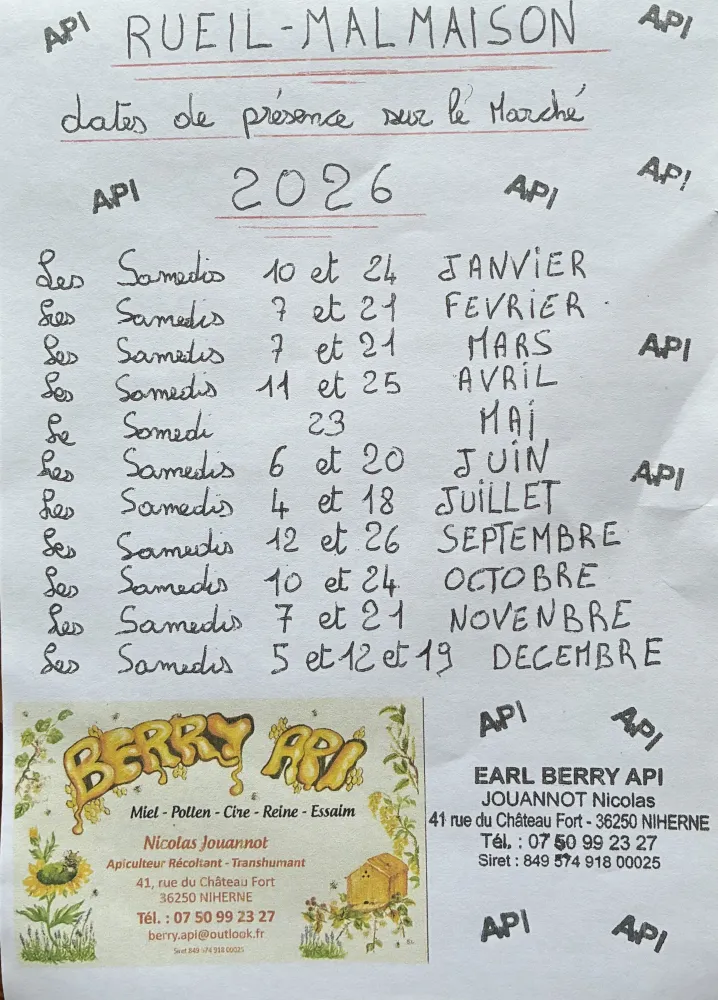 API RUEIL-MALMAISON API
dates de présence sur le Marché
API 2026 API API
Les Samedis 10 et 24 JANVIER
Les Samedis 7 et 21 FEVRIER
Les Samedis 7 et 21 MARS API
Les Samedis 11 et 25 AVRIL
Le Samedi 23 MAI
Les Samedis 6 et 20 JUIN API
Les Samedis 4 et 18 JUILLET
Les Samedis 12 et 26 SEPTEMBRE
Les Samedis 10 et 24 OCTOBRE
Les Samedis 7 et 21 NOVENBRE
Les Samedis 5 et 12 et 19 DECEMBRE
BERRY API
Miel - Pollen - Cire - Reine - Essaim
Nicolas Jouannot
Apiculteur Récoltant - Transhumant
41, rue du Château Fort
36250 NIHERNE
Tél. : 07 50 99 23 27
berry.api@outlook.fr
Siret 849 574 918 00025
API API
EARL BERRY API
JOUANNOT Nicolas
41 rue du Château Fort - 36250 NIHERNE
Tél. : 07 50 99 23 27
Siret : 849 574 918 00025
API API